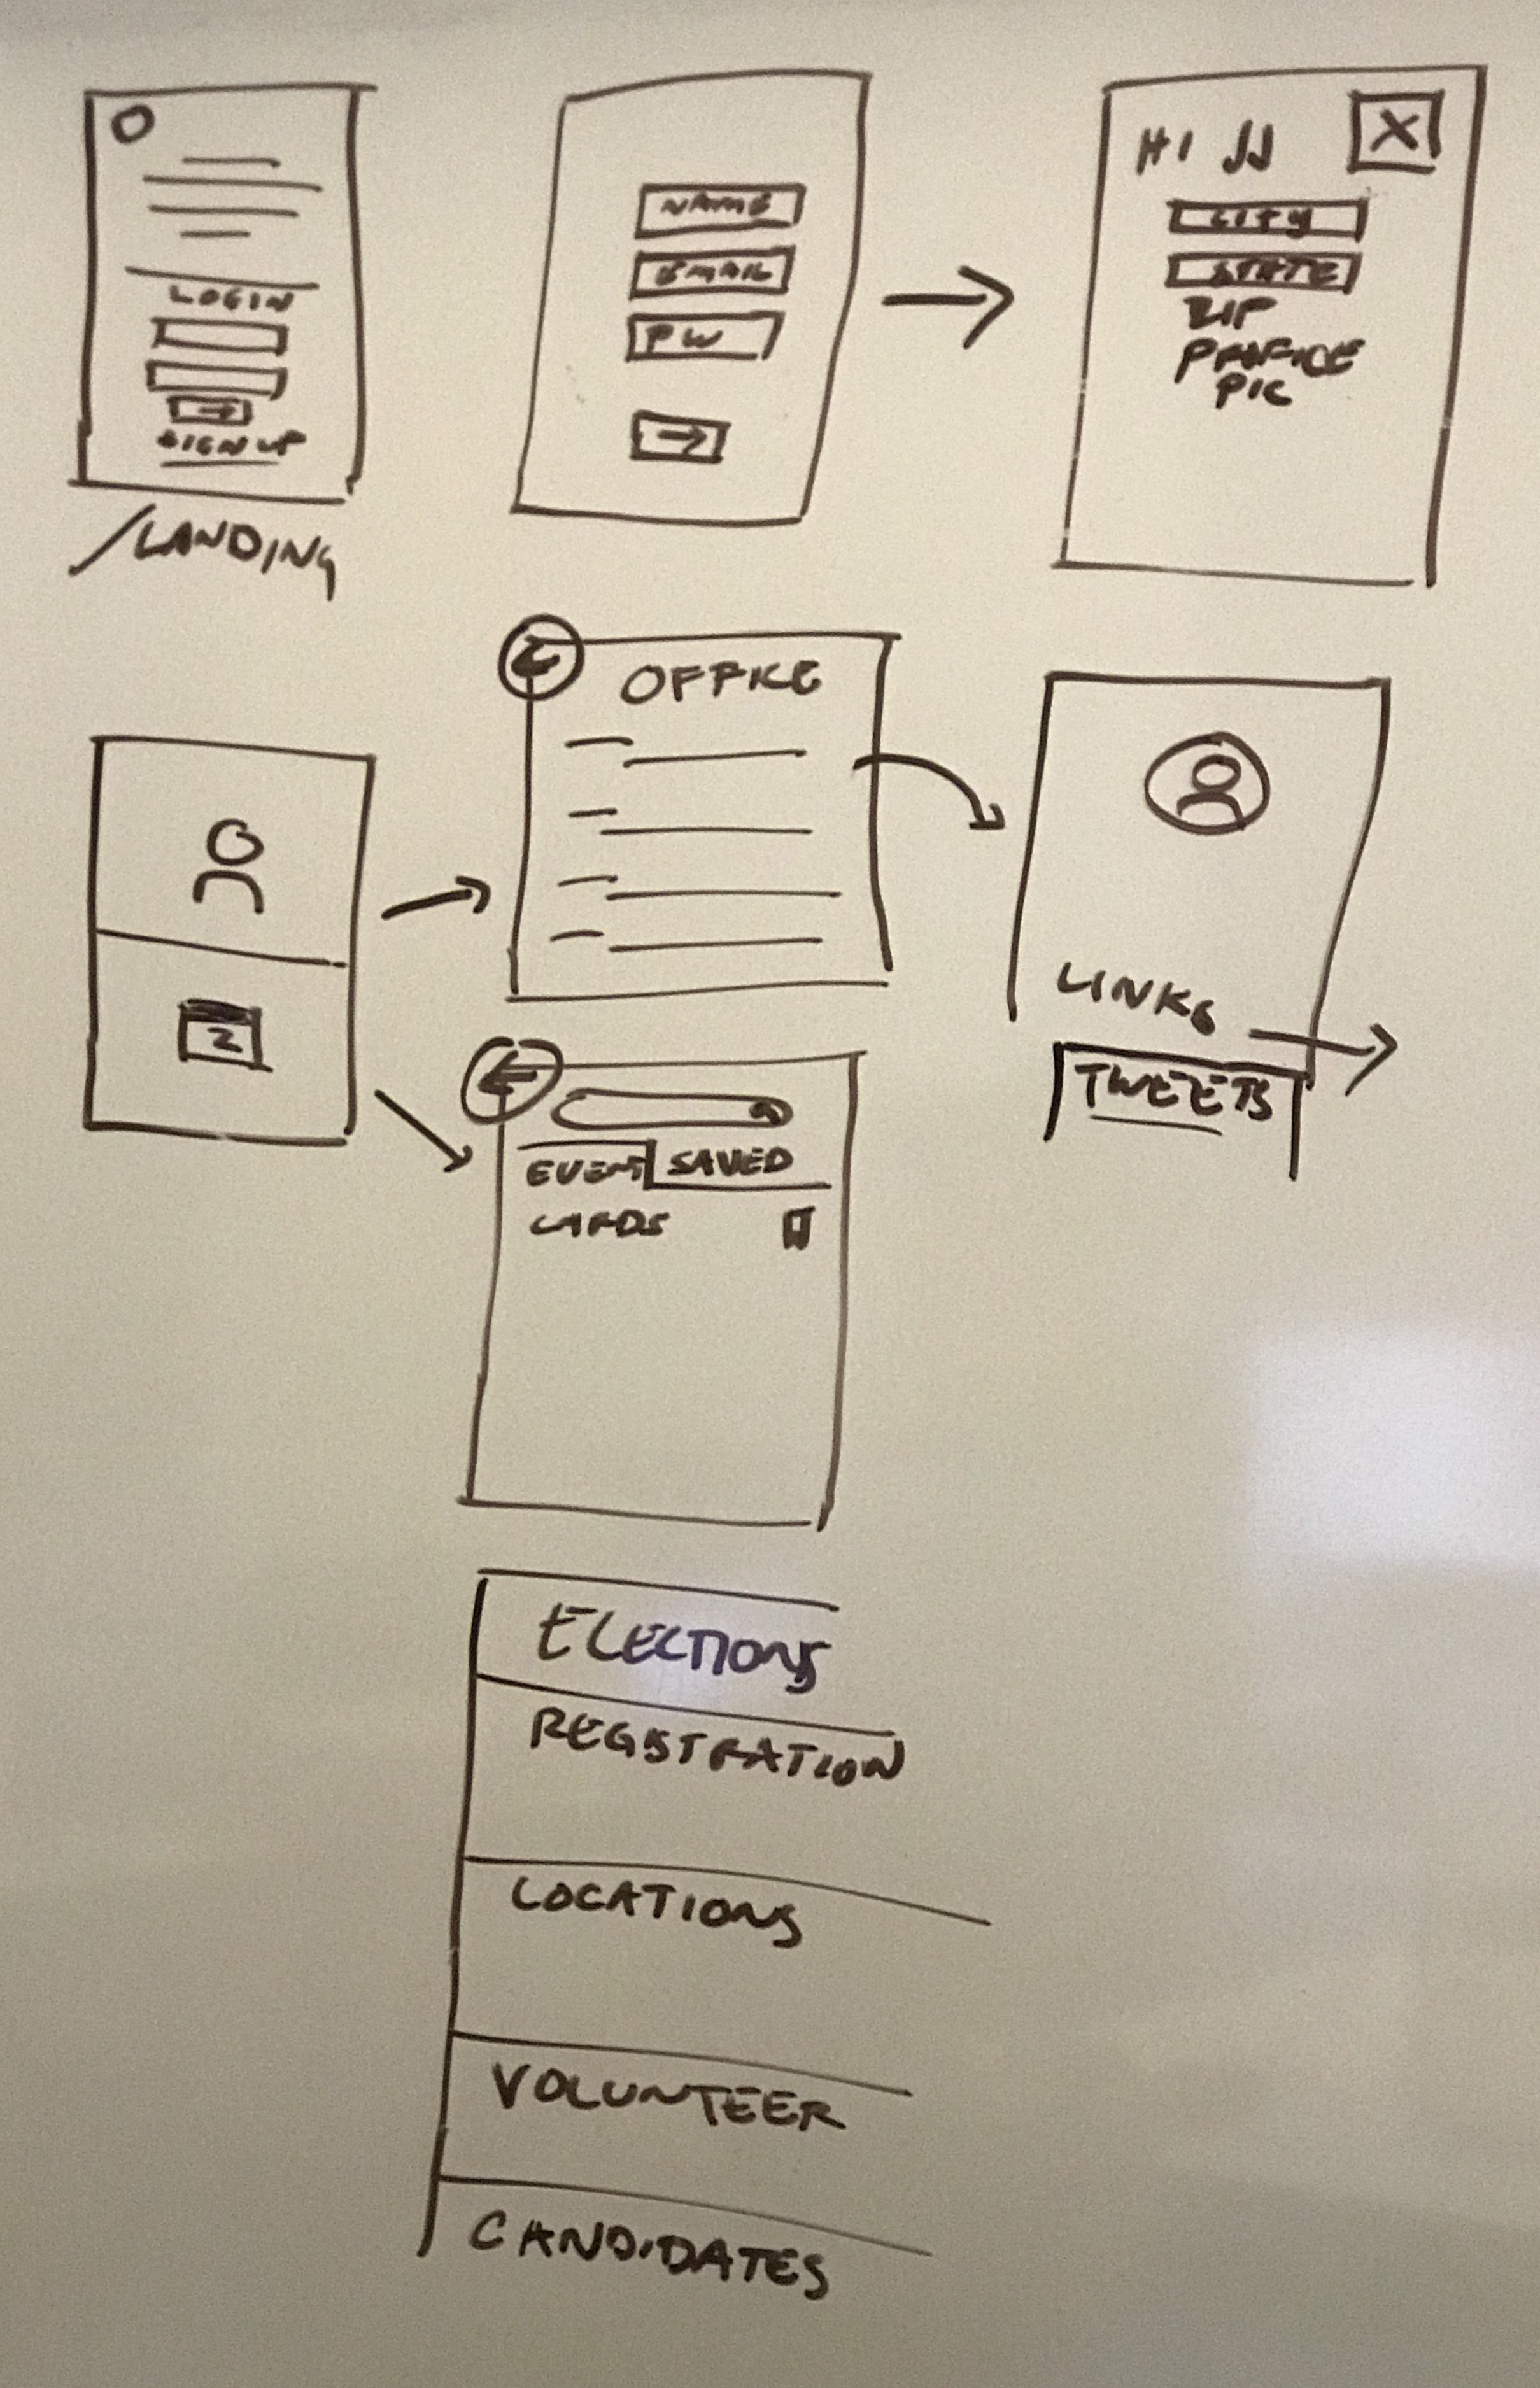 LOGIN
SIGN UP
/LANDING
NAME
EMAIL
PW
HI JJ
X
CITY
STATE
ZIP
PROFILE
PIC
OFFICE
2
LINKS
TWEETS
EVENT SAVED
CARDS
ELECTIONS
REGISTRATION
LOCATIONS
VOLUNTEER
CANDIDATES